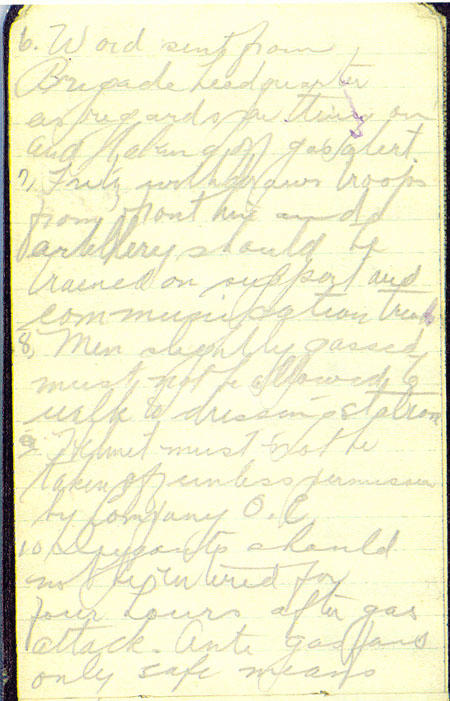 6. Word sent from
Brigade headquarter
as regards putting on
and taking off gas alert.
7, Fritz withdraws troops
from front line and
artillery should be
trained on support and
communication trench
8, Men slightly gassed
must not be allowed to
walk to dressing station
9. Helmet must not be
taken off unless permission
by Company O.C.
10. Dugouts should
not be entered for
four hours after gas
attack. Anti gas fans
only safe means